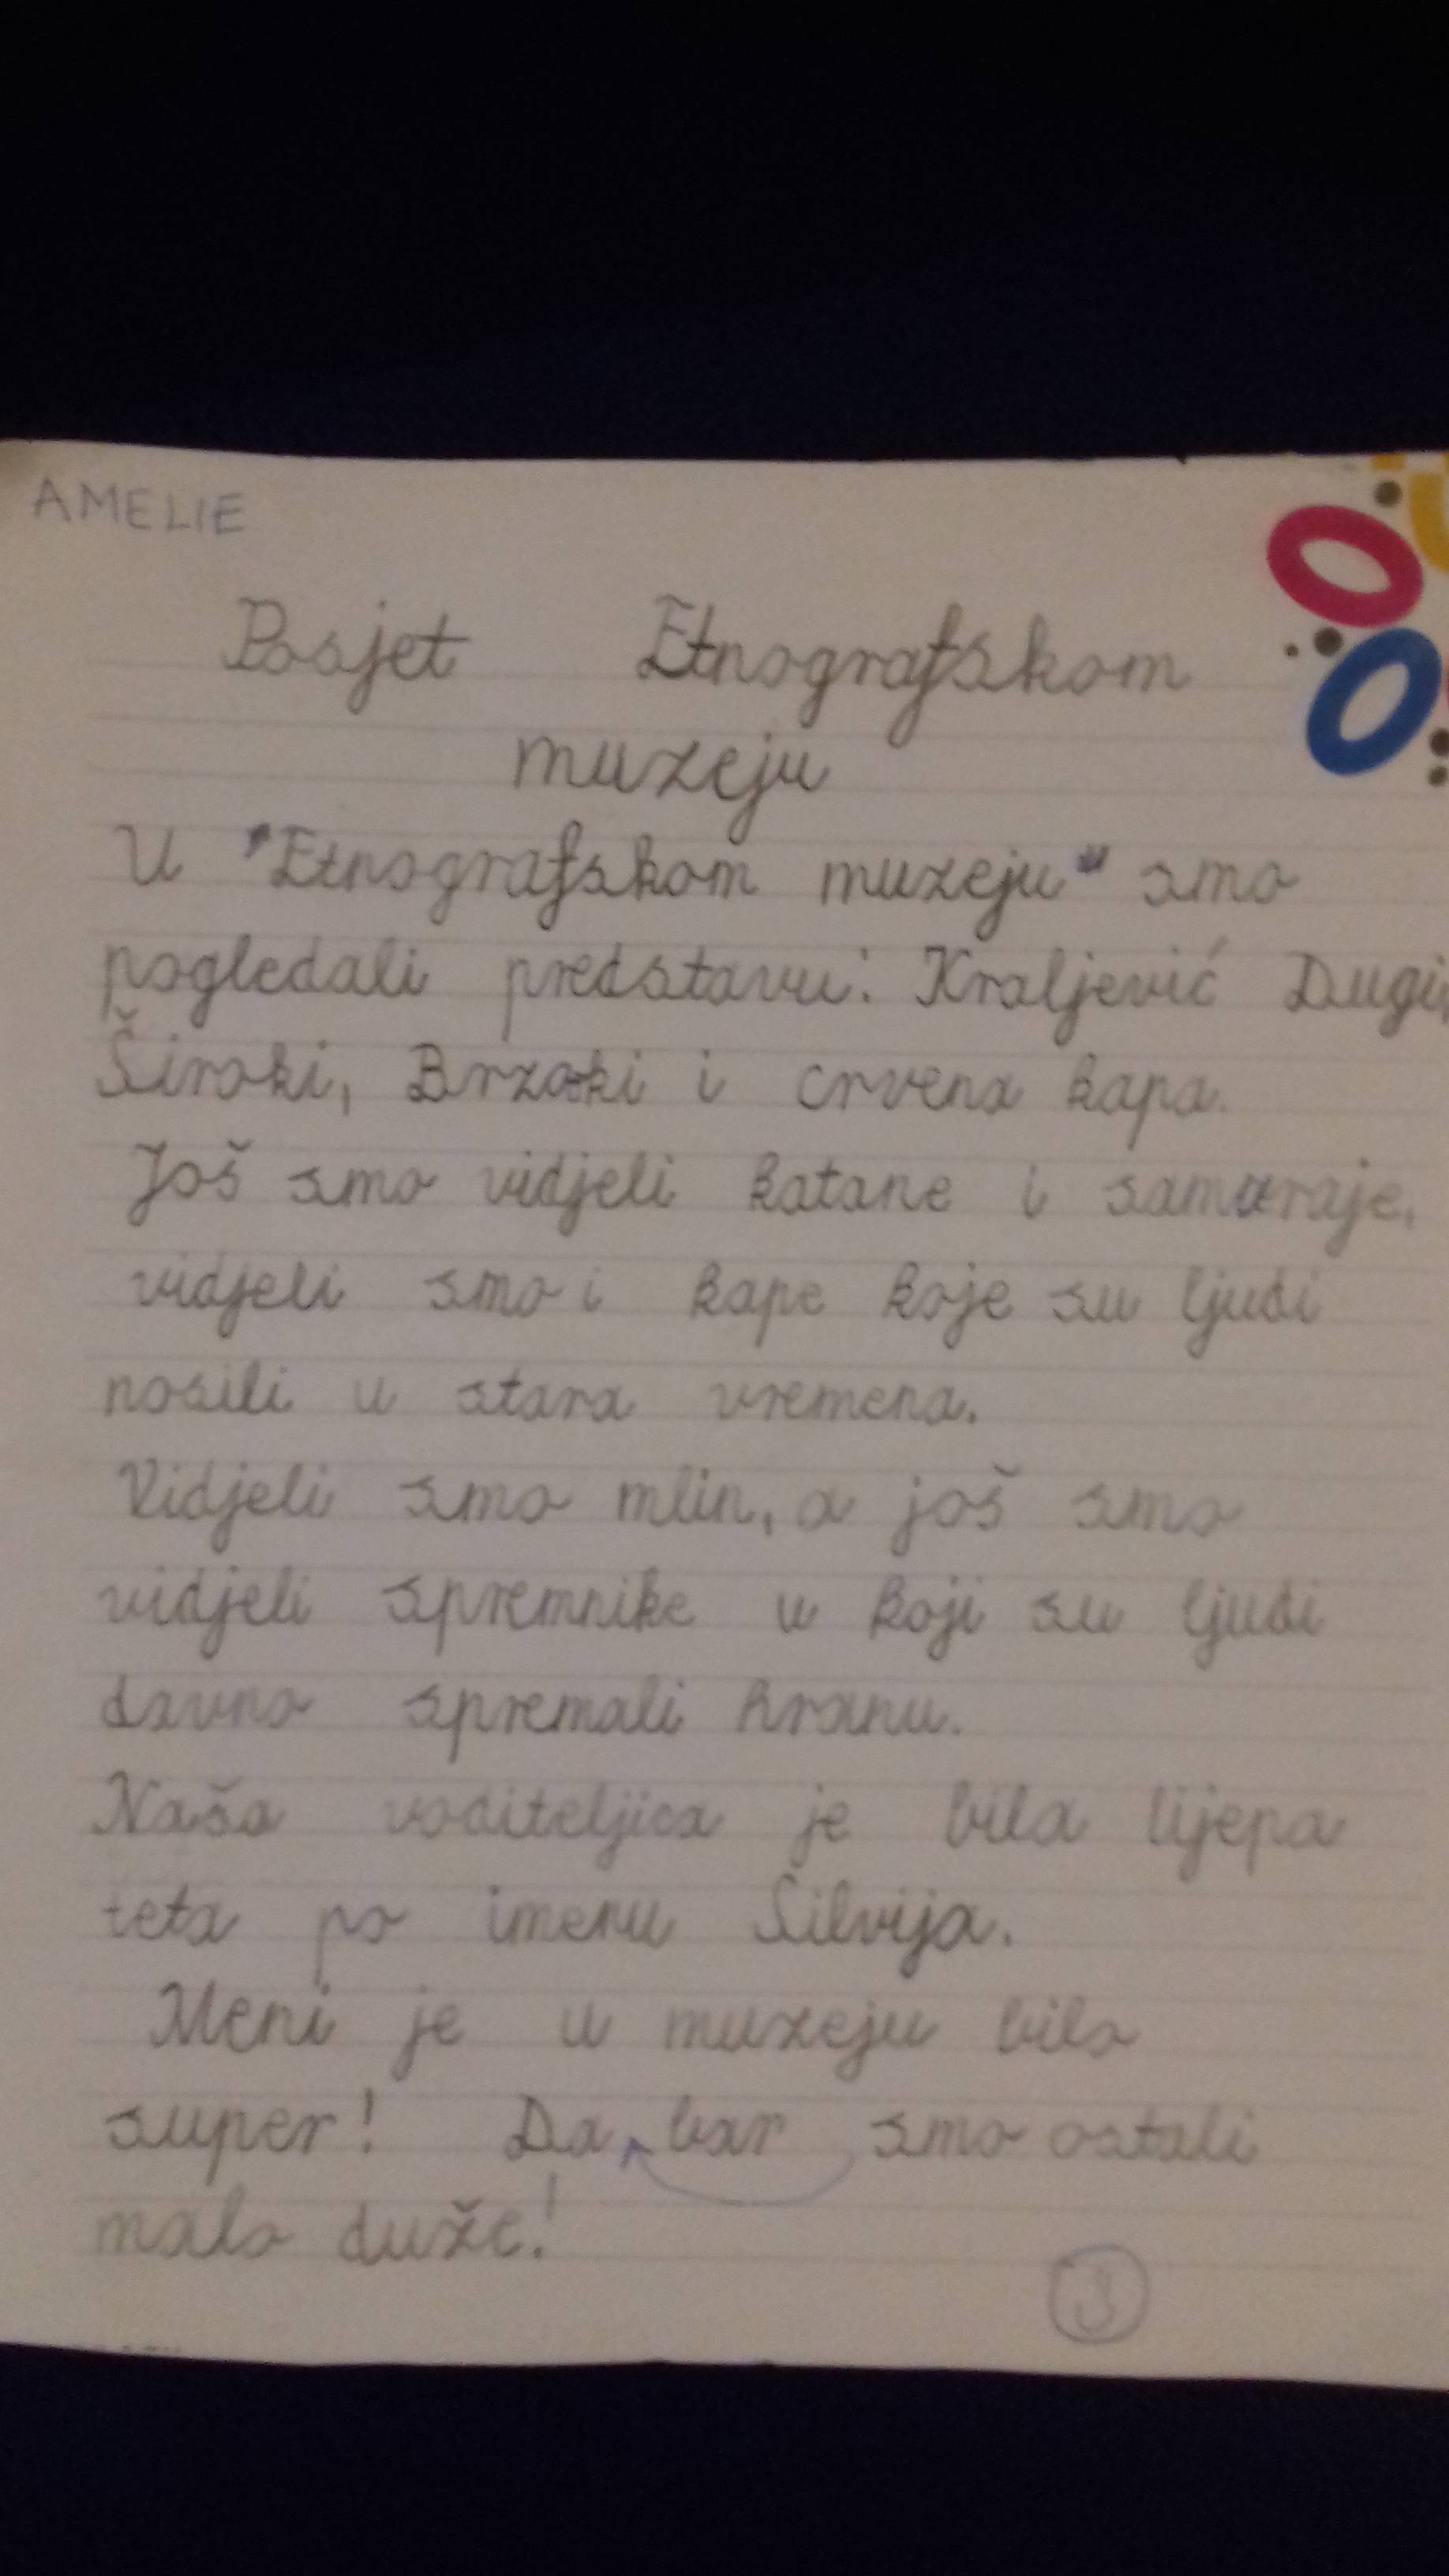 AMELIE
Posjet Etnografskom
muzeju
U "Etnografskom muzeju" smo
pogledali predstavu: Kraljević Dugi,
Široki, Brzoki i crvena kapa.
Još smo vidjeli katane i samuraje,
vidjeli smo i kape koje su ljudi
nosili u stara vremena.
Vidjeli smo mlin, a još smo
vidjeli spremnike u koji su ljudi
davno spremali hranu.
Naša voditeljica je bila lijepa
teta po imenu Silvija.
Meni je u muzeju bilo
super! Da bar smo ostali
malo duže!